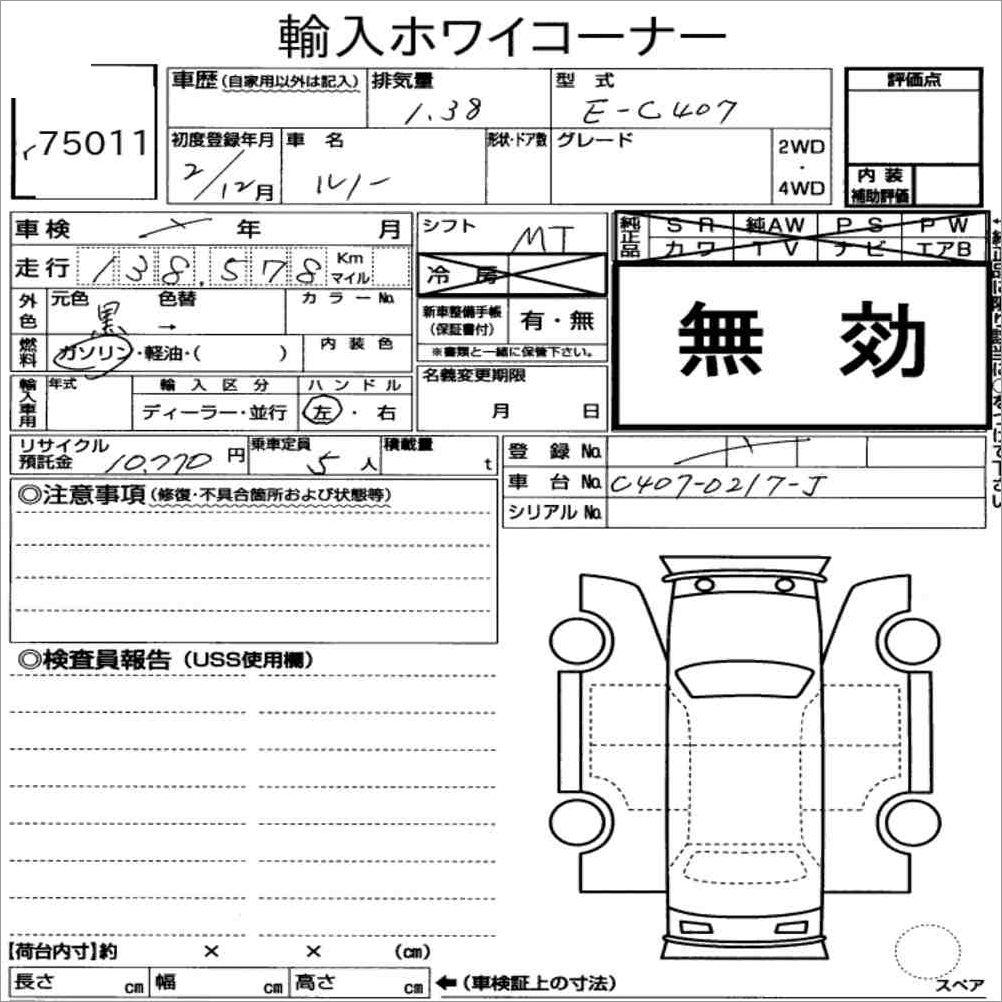 輸入ホワイコーナー
75011
車歴(自家用以外は記入) 排気量 型式 評価点
1.38 E-C407
初度登録年月 車名 形状・ドア数 グレード 2WD・4WD
2/12月 ルノー
内装補助評価
車検 年 月 シフト MT
純正品 SR 純AW PS PW
カワ TV ナビ エアB
走行 138,578 Km マイル 冷房
外色 元色 黒 色替 → カラーNo.
新車整備手帳(保証書付) 有・無
※書類と一緒に保管下さい。
無効
燃料 ガソリン・軽油・( ) 内装色
輸入車用 年式 輸入区分 ハンドル 名義変更期限
ディーラー・並行 左・右 月 日
リサイクル預託金 10,770円 乗車定員 5人 積載量 t
登録No.
車台No. C407-0217-J
シリアルNo.
◎注意事項(修復・不具合箇所および状態等)
◎検査員報告(USS使用欄)
【荷台内寸】約 × × (cm)
長さ cm 幅 cm 高さ cm ←(車検証上の寸法)
スペア